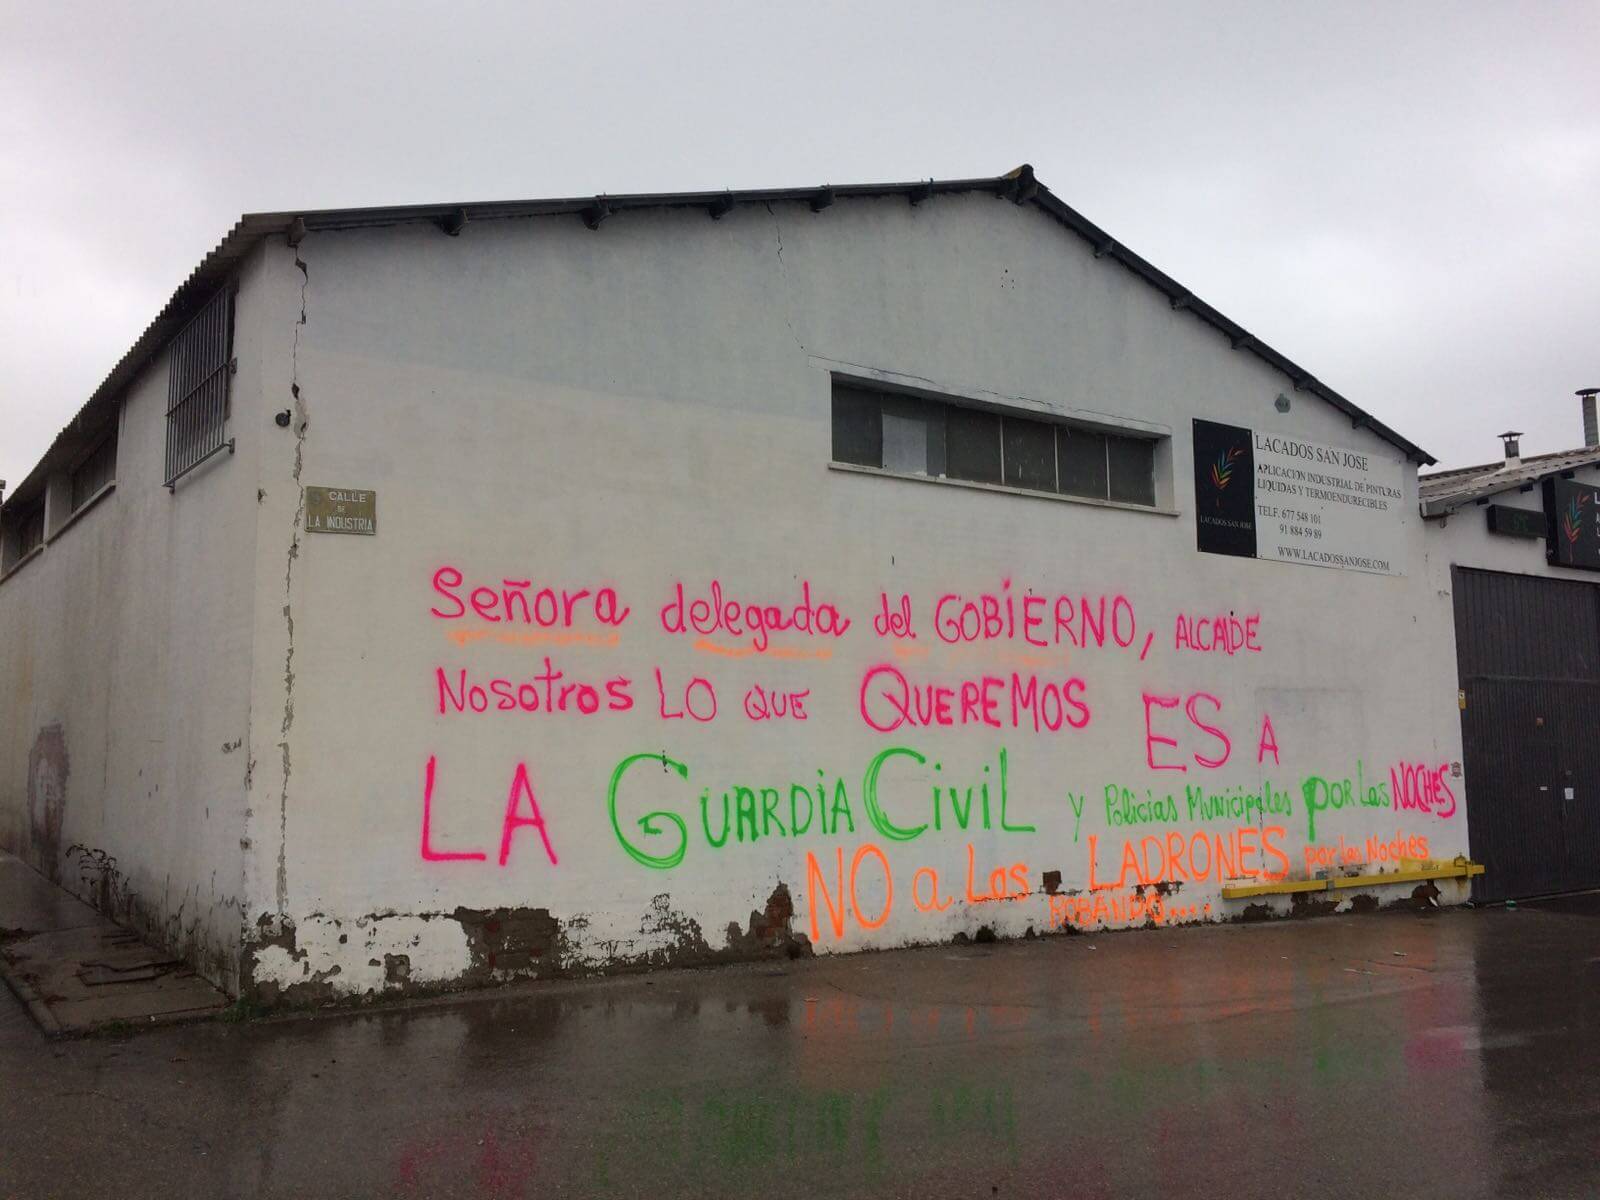 CALLE
DE
LA INDUSTRIA
LACADOS SAN JOSE
LACADOS SAN JOSE
APLICACION INDUSTRIAL DE PINTURAS
LIQUIDAS Y TERMOENDURECIBLES
TELF. 677 548 101
91 884 59 89
WWW.LACADOSSANJOSE.COM
Señora delegada del GOBiERNO, ALCALDE
Nosotros LO QUE QUEREMOS ES A
LA GUARDiA CiViL y Policias Municipales POR Las NOCHES
NO a Las LADRONES por las Noches
ROBANDO....